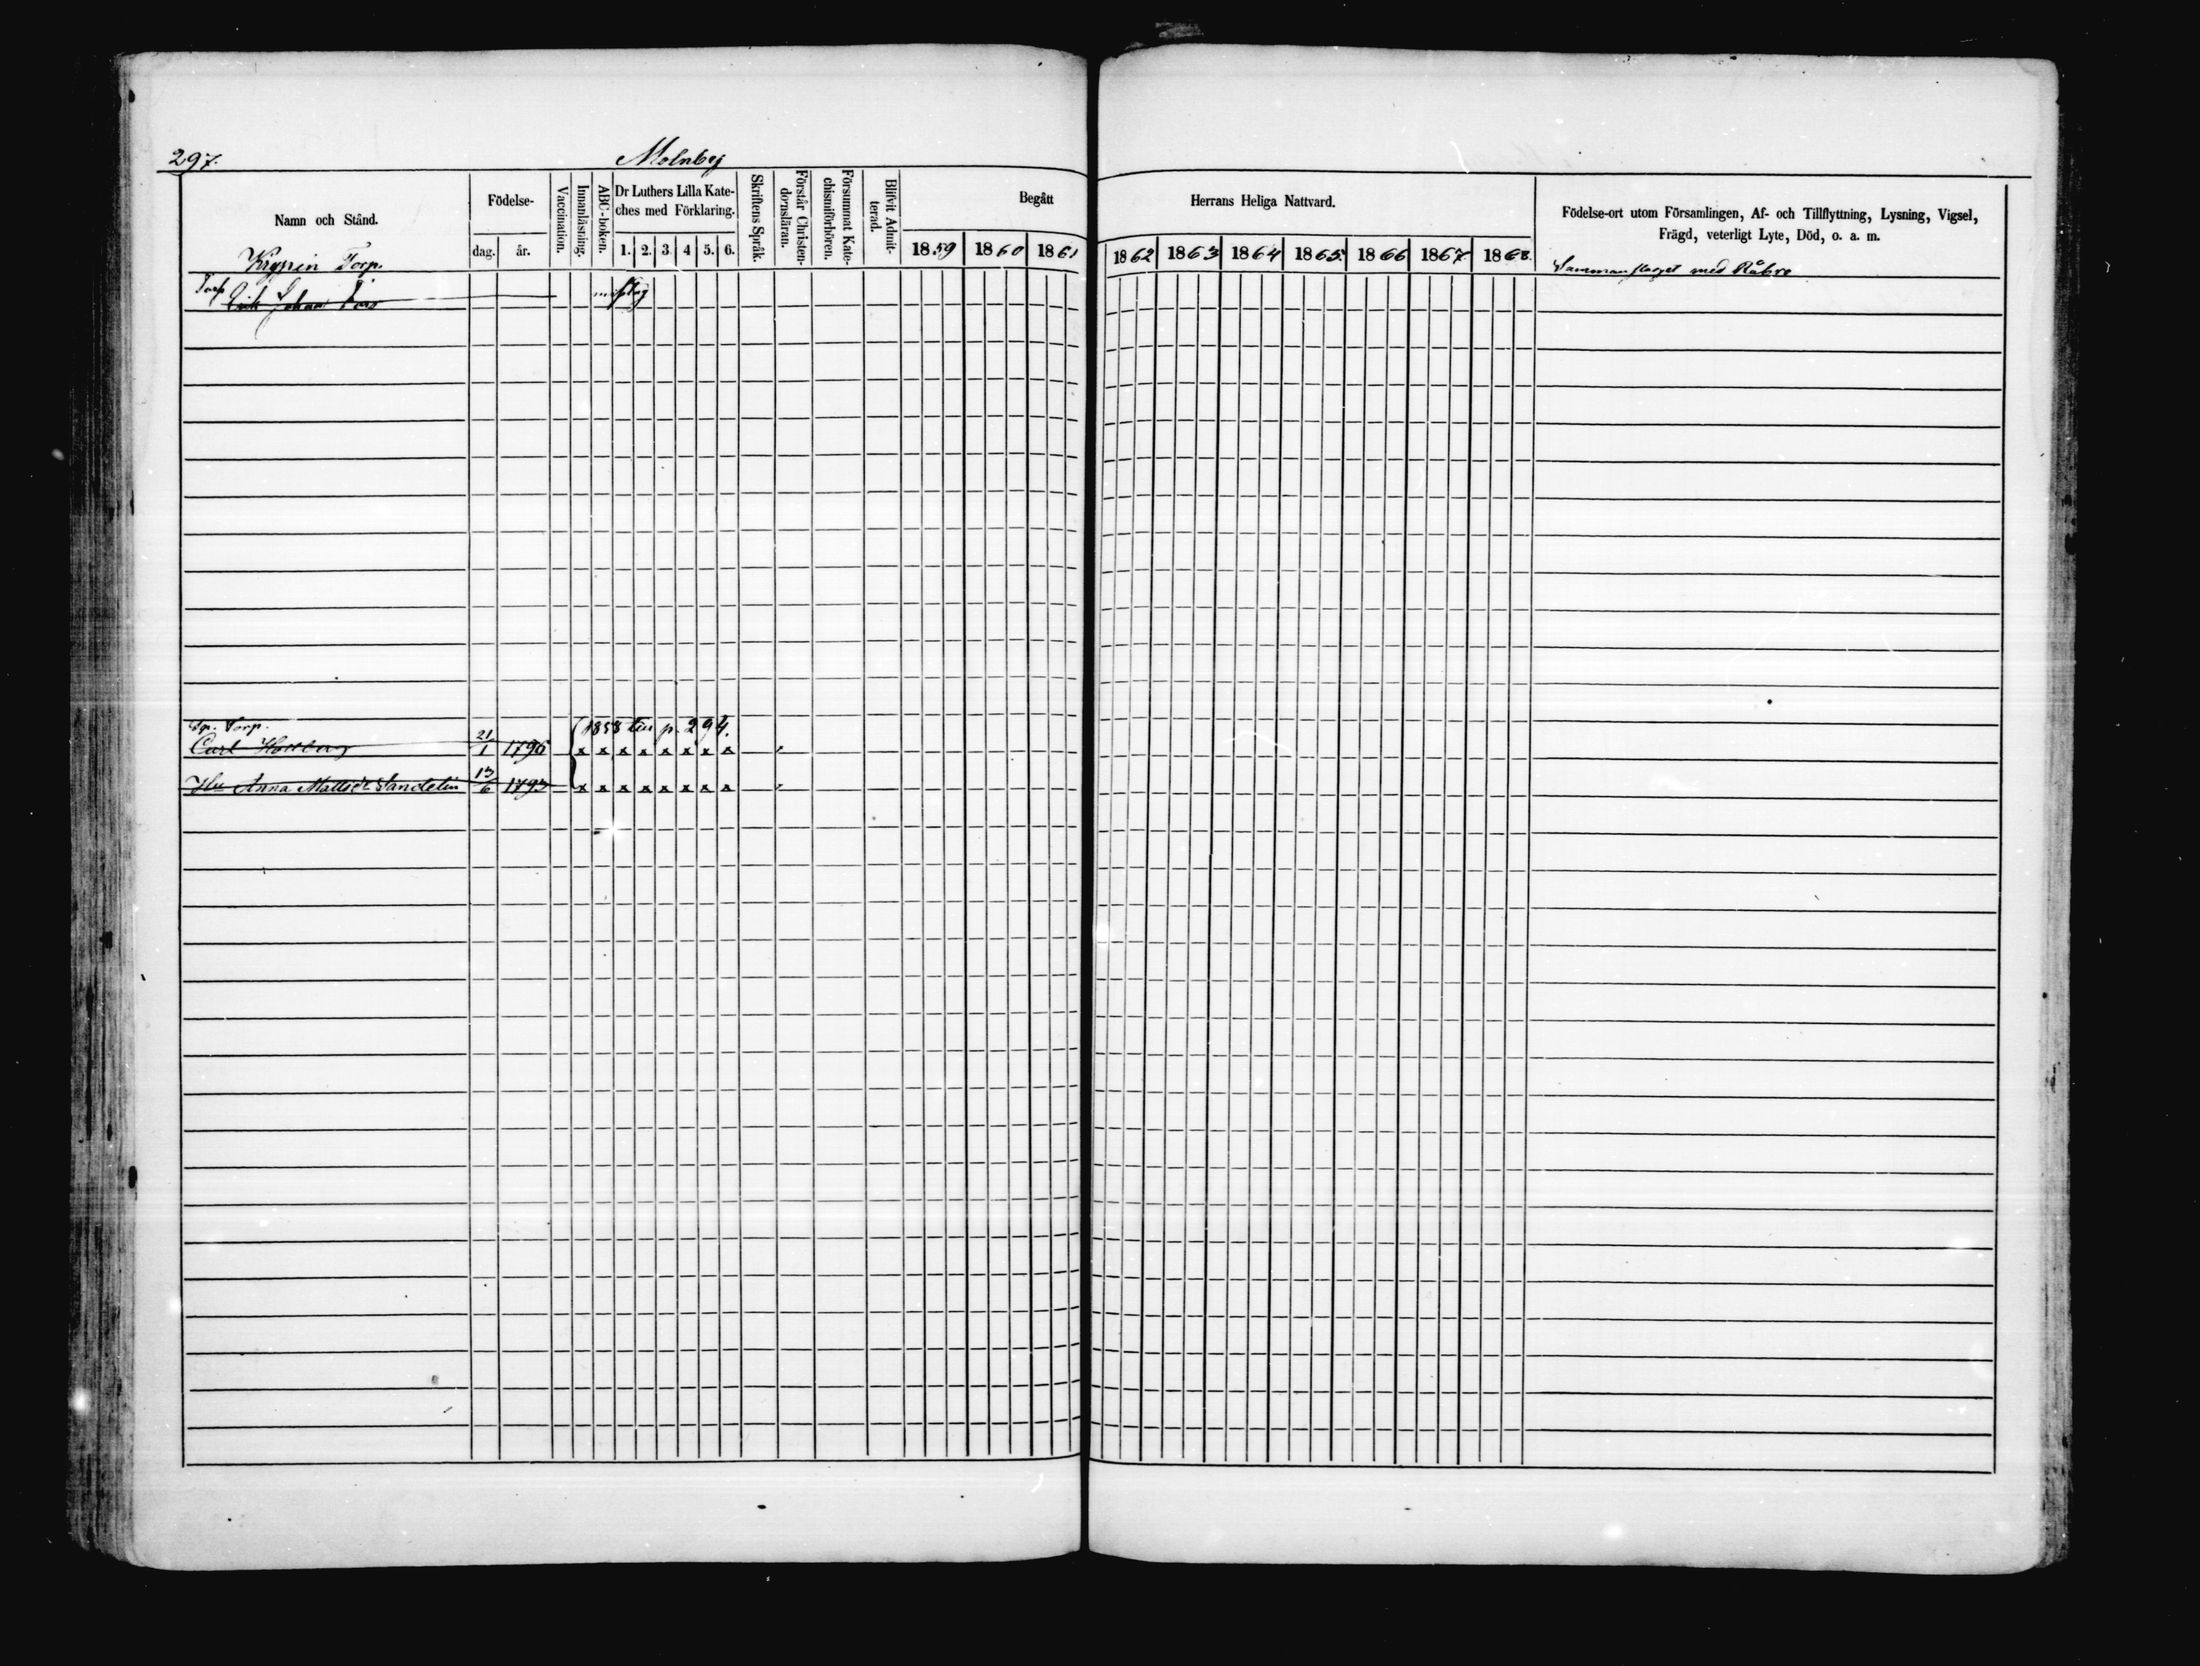 297.
Molnby
Namn och Stånd.
Födelse-
dag.
år.
Vaccination.
Innanläsning.
ABC-boken.
Dr Luthers Lilla Kate-
ches med Förklaring.
1. 2. 3 4 5. 6.
Skriftens Språk.
Förstår Christen-
domsläran.
Försummat Kate-
chismiförhören.
Blifvit Admit-
terad.
Begått
1859 1860 1861
Herrans Heliga Nattvard.
1862 1863 1864 1865 1866 1867 1868.
Födelse-ort utom Församlingen, Af- och Tillflyttning, Lysning, Vigsel,
Frägd, veterligt Lyte, Död, o. a. m.
Torp.
Sammanslaget med Råbro
Torp
Erik Johan
Torp.
(1858 p. 294.
Carl 21/1 1796 x x x x x x x x
Hu Anna Matts Dr Sandelin 13/6 1793 x x x x x x x x